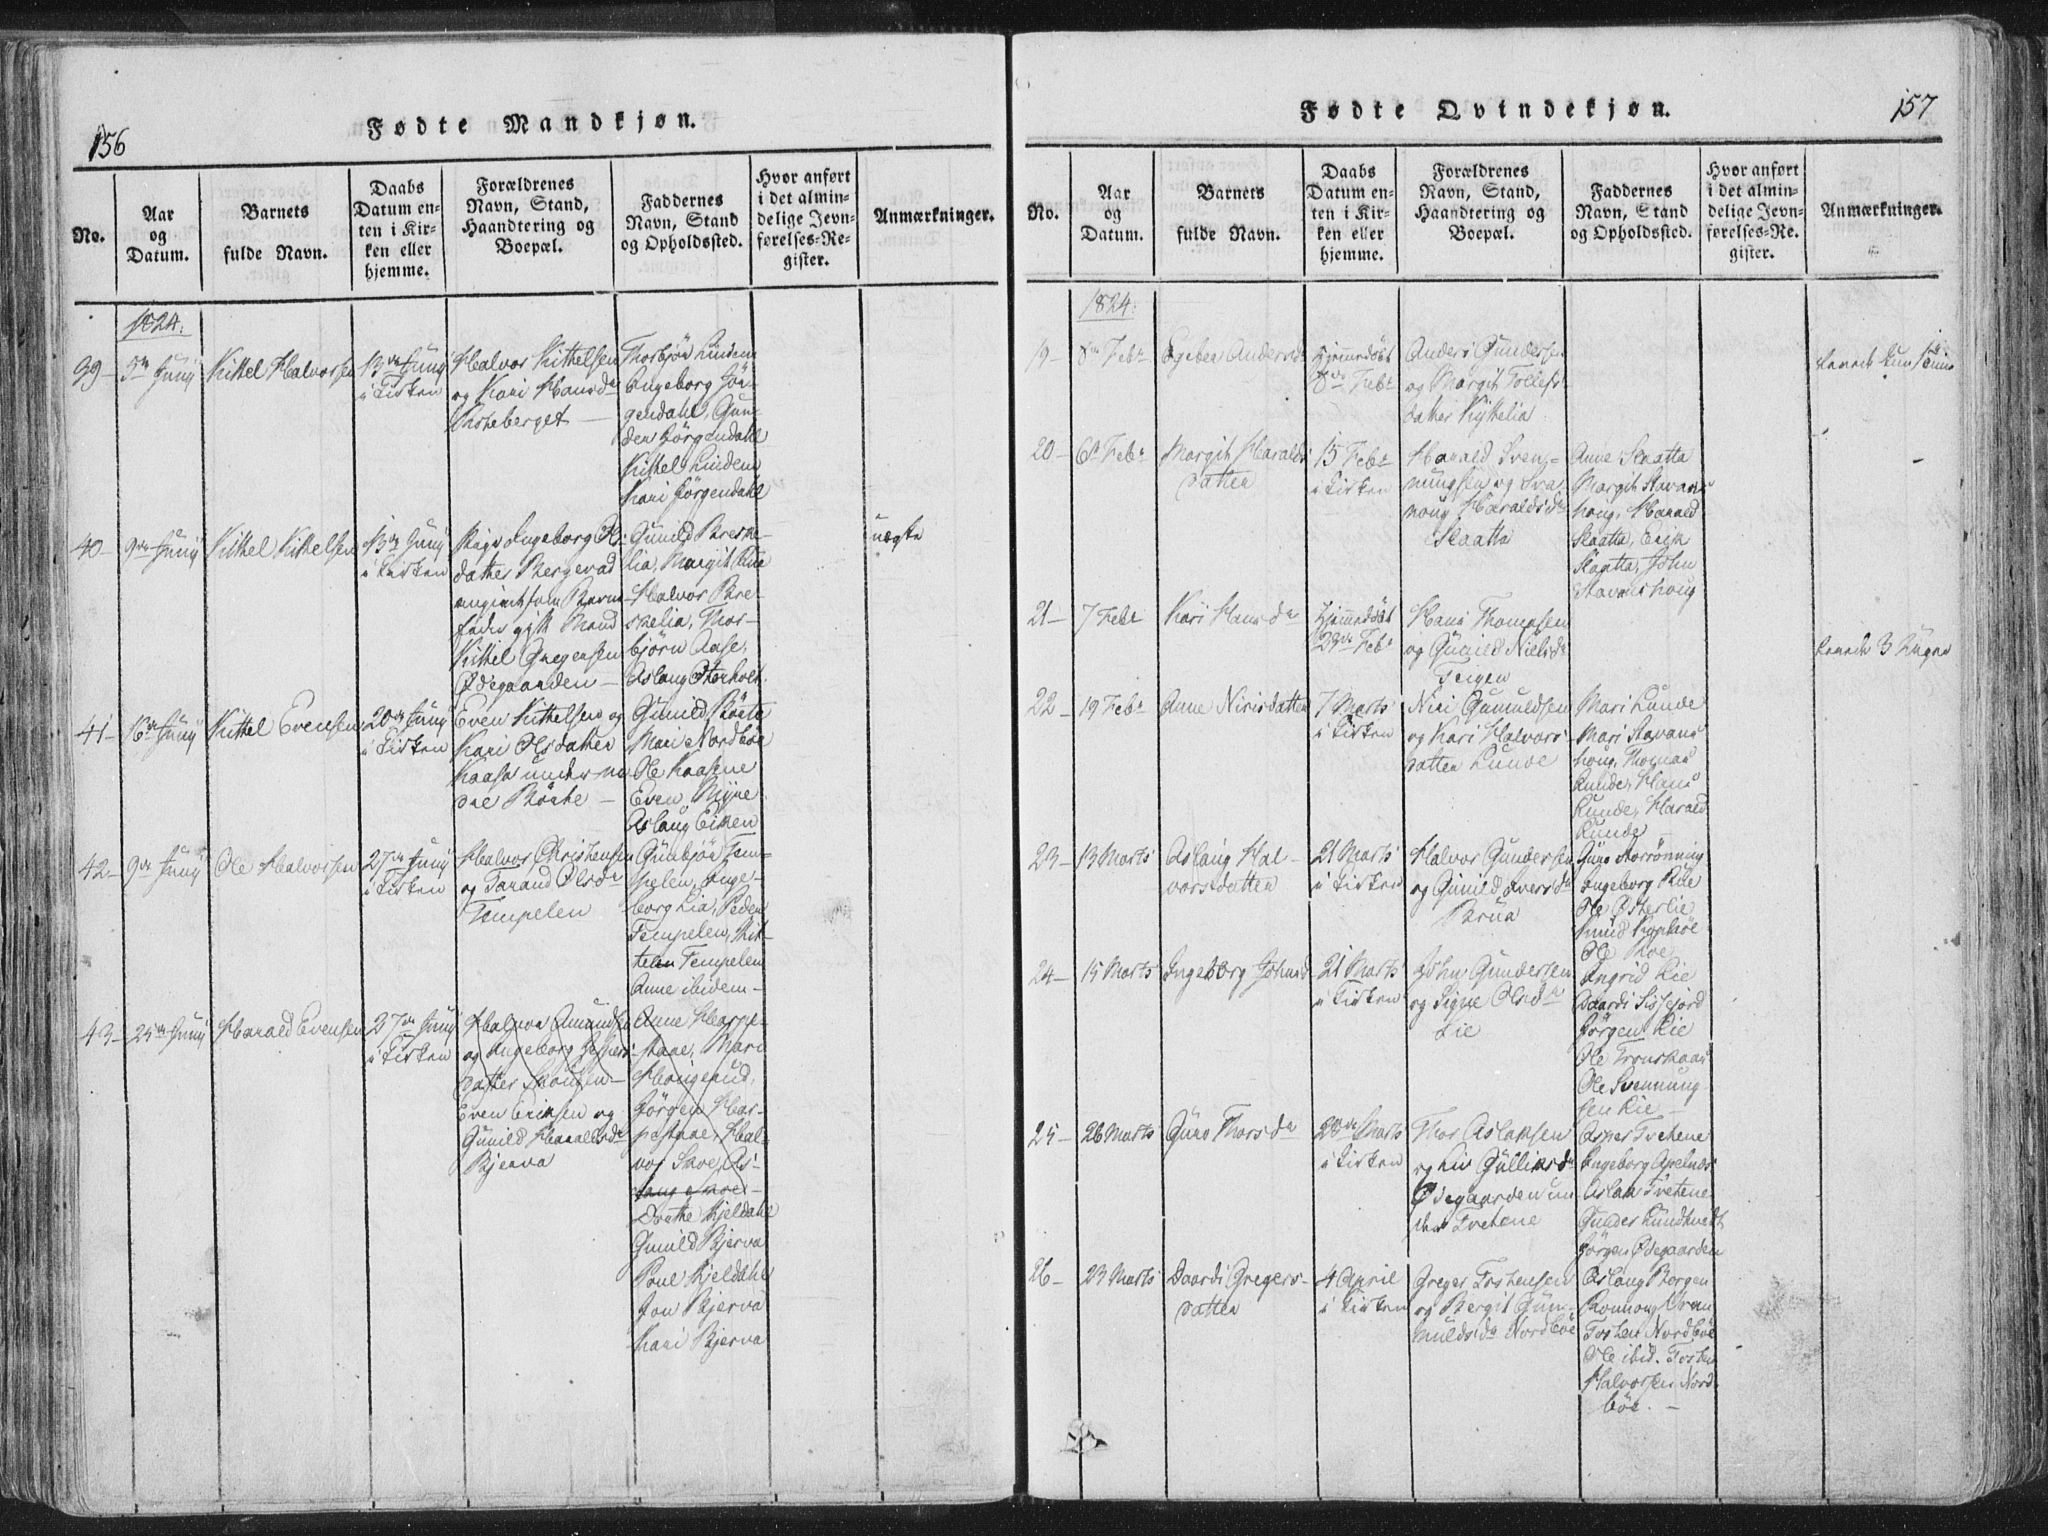 156
Fødte Mandkjøn.
No.
Aar
og
Datum.
Barnets
fulde Navn.
Daabs
Datum en-
ten i Kir-
ken eller
hjemme.
Forældrenes
Navn, Stand,
Haandtering og
Boepæl.
Faddernes
Navn, Stand
og Opholdssted.
Hvor anført
i det almin-
delige Jevn-
førelses-Re-
gister.
Anmærkninger.
1824:
39-
5te Junij
Kittel Halvorsen
13de Junij
i Kirken
Halvor Kittelsen
og Kari Hansdr
Thorbjør Lindem
Ingeborg Jör-
gendahl, Gun-
der Jörgendahl
Kittel Lindem
Kari Jörgendahl
40-
9de Junij
Kittel Kittelsen
13de Junij
i Kirken
Pige Ingeborg Ols-
datter Bergerud
angivet som Barne-
fader gift Mand
Kittel Gregersen
Ødegaarden
Gunild Breske-
lia, Margit
Halvor Bre-
skelia, Thor-
björn Aase,
Aslaug Østerholt.
uægte
41-
16de Junij
Kittel Evensen
20de Junij
i Kirken
Even Kittelsen og
Kari Olsdatter
Kaasa under
Gunild
Mari Nordböe
Ole Kaasene
Even
Aslaug Eiken
42-
9de Junij
Ole Halvorsen
27de Junij
i Kirken
Halvor Christensen
og Tarand Olsdr
Tempelen
Gunbjör Tem-
pelen, Inge-
borg Lia, Peder
Tempelen, Kit-
tel Tempelen
Anne ibidem-
43-
25de Junij
Harald Evensen
27de Junij
i Kirken
Halvor Amundsen
og Ingeborg
datter
Even Eriksen og
Gunild Haraldsdr
Bjerva
Anne Harpe-
, Mari
Haugerud,
Jörgen Har-
, Hal-
vor Skoe, As-
laug Skoe
Dorthe Hjeldahl
Gunild Bjerva
Poul Hjeldahl
Jon Bjerva
Kari Bjerva
157
Fødte Qvindekjøn.
No.
Aar
og
Datum.
Barnets
fulde Navn.
Daabs
Datum en-
ten i Kir-
ken eller
hjemme.
Forældrenes
Navn, Stand,
Haandtering og
Boepæl.
Faddernes
Navn, Stand
og Opholdssted.
Hvor anført
i det almin-
delige Jevn-
førelses-Re-
gister.
Anmærkninger.
1824:
19-
8de Febr
Andersdr
Hjemmedöbt
8de Febr
Anders Gundersen
og Margit Tollefs-
datter
20-
6te Febr
Margit Haralds
datter
15 Febr
i Kirken
Harald Sven-
nungsen og Sva-
noug Haraldsdr
Skaatta
Anne Skaatta
Margit Stavans
houg, Harald
Skaatta, Erik
Skaatta, John
Stavanshoug
21-
7 Febr
Kari Hansdr
Hjemmedöbt
Febr
Hans Thomasen
og Gunild Nielsdr
Teigen
levede 3 Uger
22-
19 Febr
Anne Nirisdatter
7 Marts
i Kirken
Niri Gunuldsen
og Kari Halvors-
datter Lunde
Mari Lunde
Mari Stavans
houg, Thomas
Lunde, Hans
Lunde, Harald
Lunde
23-
13 Marts
Aslaug Hal-
vorsdatter
21 Marts
i Kirken
Halvor Gundersen
og Gunild Iversdr
Brua
Guro Storrönning
Ingeborg Rue
Ole Østerlie
Knud
Ole Roe
24-
15 Marts
Ingeborg Johnsd
21 Marts
i Kirken
John Gundersen
og Signe Olsdr
Lie
Ingrid Lie
Daardi
Jörgen Lie
Ole
Ole Svennung-
sen Lie
25-
26 Marts
Guro Thorsdr
28de Marts
i Kirken
Thor Aslaksen
og Liv Gulliksdr
Ødegaarden un-
der Tvetene
Asper Tvetene
Ingeborg Apelnæs
Aslak Tvetene
Gunder Lundtvedt
Jörgen Ødegaarden
26-
23 Marts
Daardi Gregers-
datter
4 April
i Kirken
Greger Tostensen
og Bergit Gun-
nuldsdr Nordböe
Aslaug Bergen
Rönnoug
Tosten Nordböe
Ole ibid. Tosten
Halvorsen Nord-
böe.-